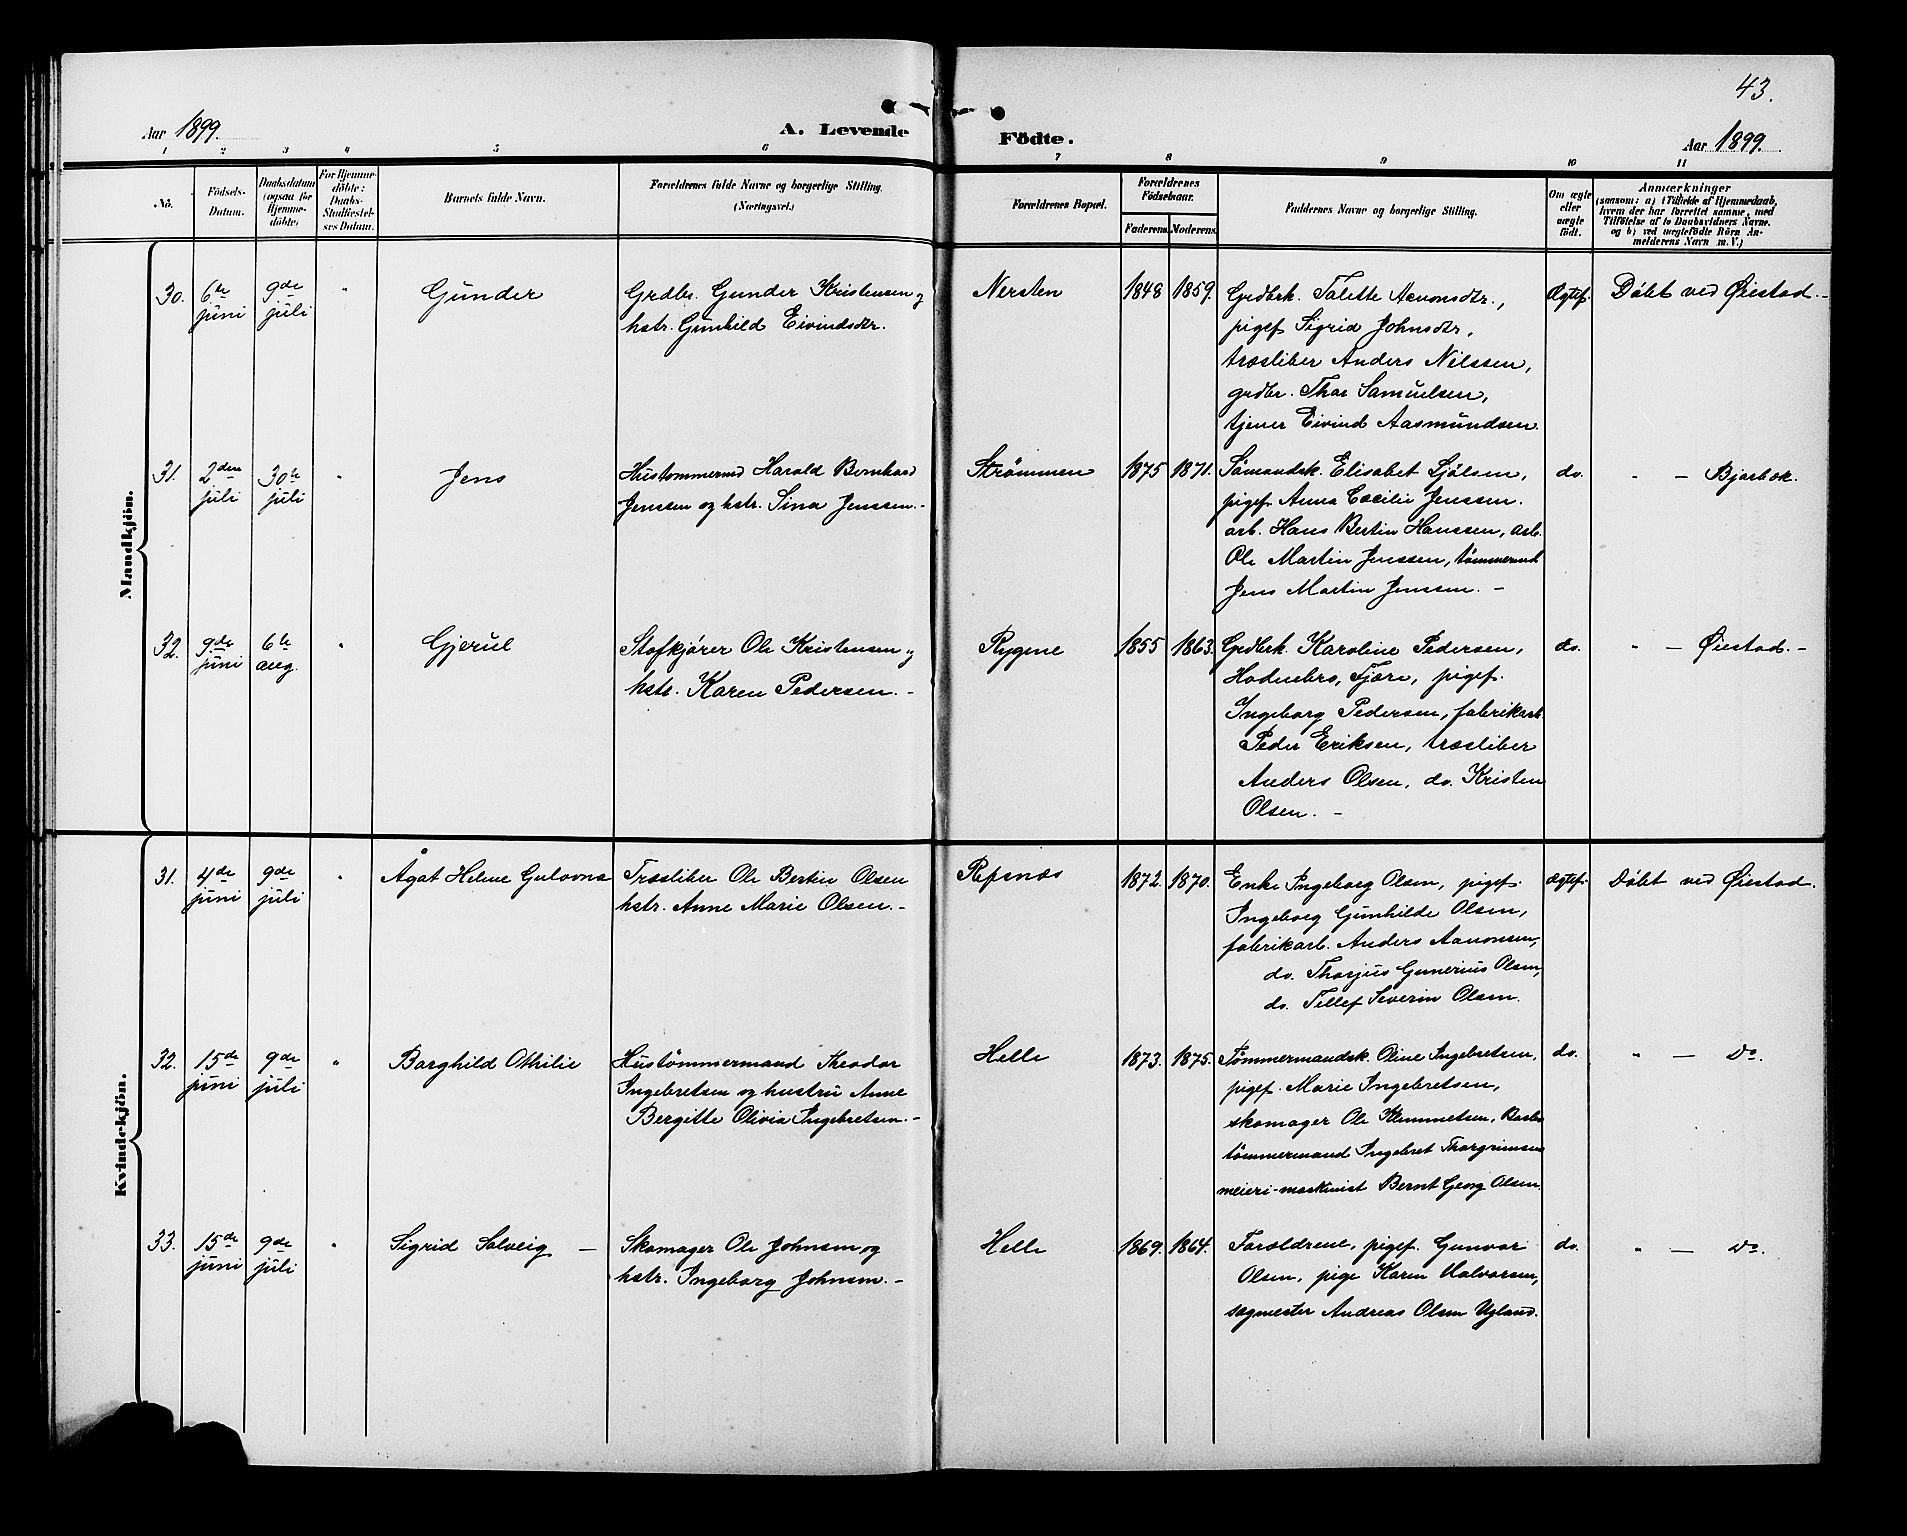 43.
Aar 1899.
A. Levende Födte.
Aar 1899.
1 2 3 4 5 6 7 8 9 10 11
No.
Födsels-
Datum.
Daabsdatum
(ogsaa for
Hjemme-
döbte)
For Hjemme-
döbte:
Daabs-
Stadfæstel-
ses Datum.
Barnets fulde Navn.
Forældrenes fulde Navne og borgerlige Stilling.
(Næringsvei.)
Forældrenes Bopæl.
Forældrenes
Födselsaar.
Faderens. Moderens.
Faddernes Navne og borgerlige Stilling.
Om ægte
eller
uægte
födt.
Anmærkninger
(saasom: a) i Tilfælde af Hjemmedaab,
hvem der har forrettet samme, med
Tilföielse af to Daabsvidners Navne,
og b) ved uægtefödte Börn An-
melderens Navn m. V.)
Mandkjön.
30.
6te
juni
9de
juli
"
Gunder
Grdbr. Gunder Kristensen og
hstr. Gunhild Eivindsdtr.
Nersten
1848
1859.
Grdbrk. Talette Aanonsdtr.,
pigef Sigrid Johnsdtr,
træsliber Anders Nilssen,
grdbr. Thor Samuelsen,
tjener Eivind Aasmundsen.
Ægtef.
Döbt ved Øiestad.-
31.
2den
juli
30te
juli
"
Jens
Hustømmermd Harald Bernhard
Jenssen og hstr. Sina Jenssen.-
Strømmen
1875
1871.
Sømandsk. Elisabet Sjölsen,
pigef. Anna Cæcilie Jenssen.
arb. Hans Bertin Hanssen, arb.
Ole Martin Jenssen, tømmermd
Jens Martin Jenssen. -
do.
" - Bjorbæk.
32.
9de
juni
6te
aug.
"
Gjerul
Stofkjører Ole Kristensen og
hstr. Karen Pedersen. -
Rygene
1855
1863.
Grdbrk. Karoline Pedersen,
Hodnebro, Fjære, pigef.
Ingeborg Pedersen, fabrikarb.
Peder Eriksen, træsliber
Anders Olsen, do. Kristen
Olsen. -
do.
" - Øiestad.-
Kvindekjön.
31.
4de
juni
9de
juli
"
Ågat Helene Gulovna
Træsliber Ole Bertin Olsen
hstr. Anne Marie Olsen.-
Refsnæs
1872.
1870.
Enke Ingeborg Olsen, pigef.
Ingeborg Gunhilde Olsen,
fabrikarb. Anders Aanonsen,
do. Thorjus Gunerius Olsen,
do. Tellef Severin Olsen.
Ægtef.
Döbt ved Øiestad.
32.
15de
juni
9de
juli
"
Borghild Othilie
Hustømmermand Theodor
Ingebretsen og hustru Anne
Bergitte Olivia Ingebretsen.-
Helle
1873.
1875.
Tømmermandsk. Oline Ingebretsen,
pigef. Marie Ingebretsen,
skomager Ole Klemmetsen,
tømmermand Ingebret Thorgrimsen
meieri-maskinist Bernt Georg Olsen.
do.
" - Do.
33.
15de
juni
9de
juli
"
Sigrid Solveig -
Skomager Ole Johnsen og
hstr. Ingeborg Johnsen.-
Helle
1869.
1864.
Forældrene, pigef. Gunvor
Olsen, pige Karen Halvorsen,
sagmester Andreas Olsen Ugland.
do.
" - Do.